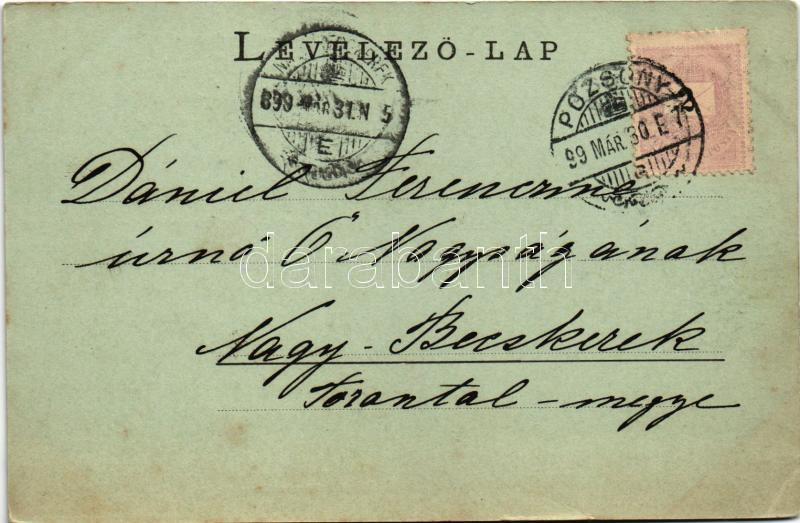 LEVELEZŐ-LAP
899 MÁR. 31. N 5
E
POZSONY
99 MÁR. 30 E 7
Dániel Ferenczné
úrnő Ő Nagyságának
darabanth
Nagy-Becskerek
Torontal-megye